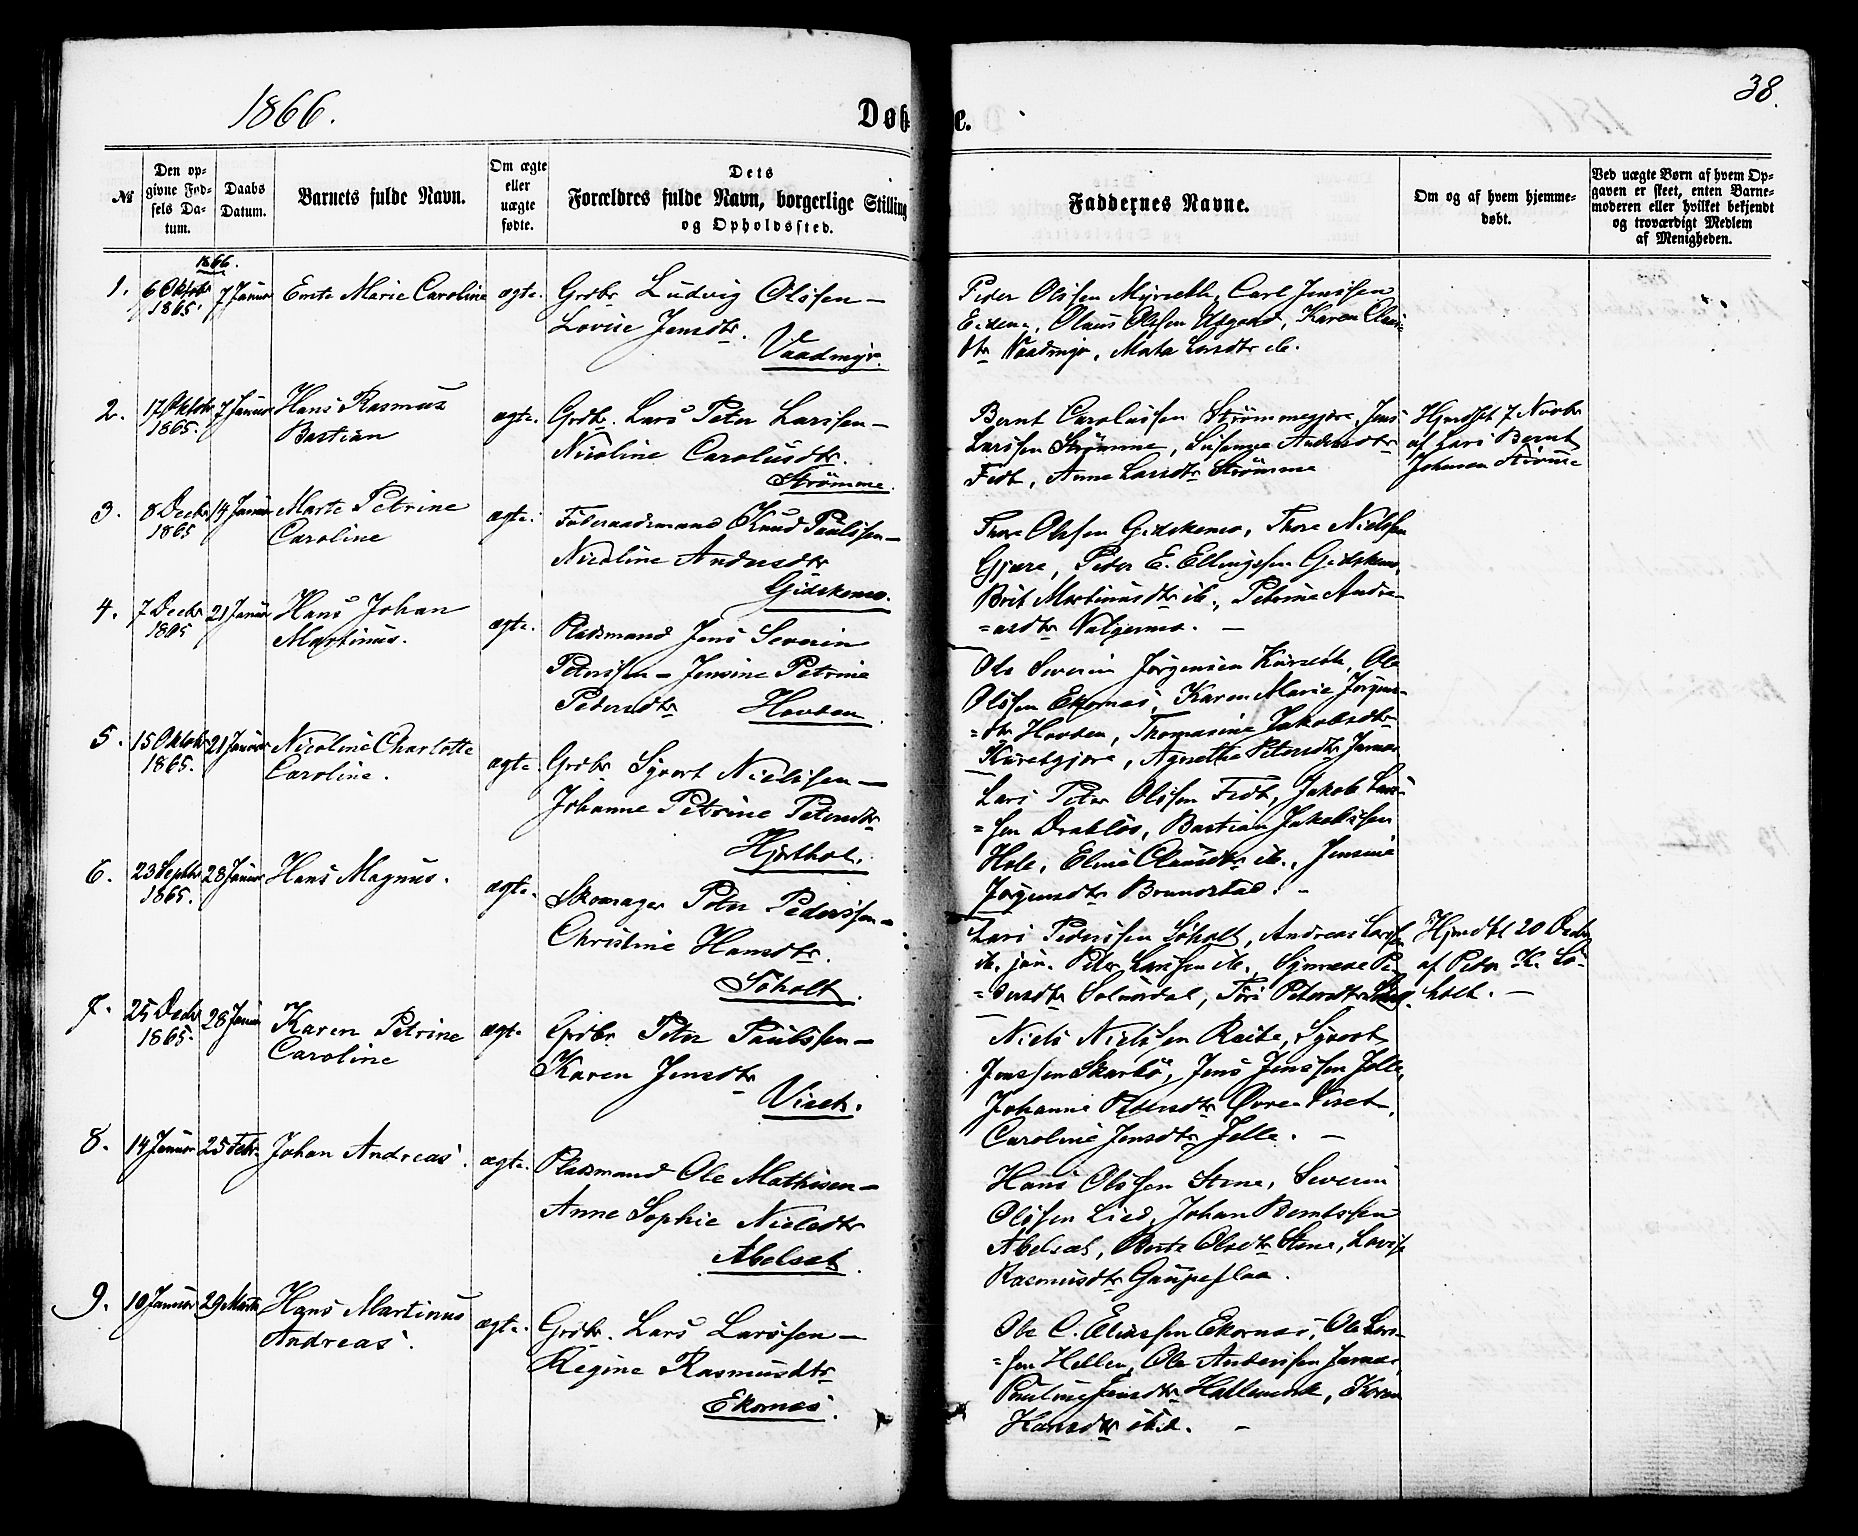 1866.
Døbte.
38.
№
Den opgivne Fødsels Datum.
Daabs Datum.
Barnets fulde Navn.
Om ægte eller uægte fødte.
Dets Forældres fulde Navn, borgerlige Stilling og Opholdssted.
Faddernes Navne.
Om og af hvem hjemmedøbt.
Ved uægte Børn af hvem Opgaven er skeet, enten Barnemoderen eller hvilket bekjendt og troværdigt Medlem af Menigheden.
1866.
1. 6 Oktobr 1865. 7 Januar Emte Marie Caroline ægte. Grdbr Ludvig Olssen —
Lovise Jensdtr.
Vaadmyr.
Peder Olssen Myrseth, Carl Jenssen
Eidem, Olaus Olssen Utgaard, Karen Claus
dtr Vaadmyr, Marta Larsdtr ib.
2. 17 Oktobr 1865. 7 Januar Hans Rasmus
Bastian
ægte. Grdbr. Lars Peter Larssen —
Nicoline Carolusdtr.
Strømme.
Bernt Carolussen Strømmegjære, Jens
Larssen Strømme, Susanne Andersdtr
Fedt, Anne Larsdtr Strømme
Hjmdbt 7 Novbr
af Lars Bernt
Johnsen Strømme
3. 8 Decbr 1865 14 Januar Marte Petrine
Caroline
ægte. Føderaadsmand Knud Paulssen —
Nicoline Andersdtr
Gidskemo.
Thore Olssen Gidskemo, Thore Nielssen
Gjære, Peder E. Ellingssen Gidskemo,
Brit Martinusdtr ib., Petrine Andre-
=asdtr Valgermo. —
4. 7 Decbr 1865 21 Januar Hans Johan
Martinus.
ægte. Pladsmand Jens Severin
Peterssen — Jensine Petrine
Pedersdtr Hovden.
Ole Severin Jørgensen Kurseth, Ole
Olssen Ekornæs, Karen Marie Jørgens-
=dtr Hovden, Thomasine Jakobsdtr
Kursetgjære, Agnethe Petersdtr
5. 15 Oktobr 1865. 21 Januar Nicoline Charlotte
Caroline.
ægte. Grdbr Syvert Nielssen —
Johanne Petrine Petersdtr
Hjorthol.
Lars Peter Olssen Fedt, Jakob Lars-
=sen Drabløs, Bastian Jakobssen
Hole, Eline Clausdtr ib., Jensine
Jørgensdtr Brunstad. —
6. 23 Septbr 1865. 28 Januar Hans Magnus.
ægte. Skomager Peter Pederssen —
Christine Hansdtr.
Søholt.
Lars Pederssen Søholt, Andreas Larssen
ib. jun. Peter Larssen ib., Synneve Pe-
=dersdtr Solnørdal, Tøri Petersdtr
Hjmdbt 20 Decbr
af Peter K. Sø-
holt. —
7. 25 Decbr 1865. 28 Januar Karen Petrine
Caroline
ægte Grdbr Peter Paulssen —
Karen Jensdtr
Viset.
Niels Nielssen Raite, Syvert
Jenssen Skarbø, Jens Jenssen Jelle,
Johanne Pedersdtr Øvre Viset,
Caroline Jensdtr Jelle. —
8. 14 Januar 25 Febr. Johan Andreas. ægte. Pladsmand Ole Mathisen —
Anne Sophie Nielsdtr
Abelset.
Hans Olssen Stene, Severin
Olssen Lied, Johan Berntssen
Abelset, Berte Olsdtr Stene, Lovise
Rasmusdtr Gaupeflaa.
9. 10 Januar 29 Marts Hans Martinus
Andreas.
ægte. Grdbr. Lars Larssen —
Regine Rasmusdtr
Ekornæs.
Ole C. Eliassen Ekornæs, Ole Lars-
=sen Hellen, Ole Anderssen
Pauline Jensdtr Karen
Hansdtr ibid. —